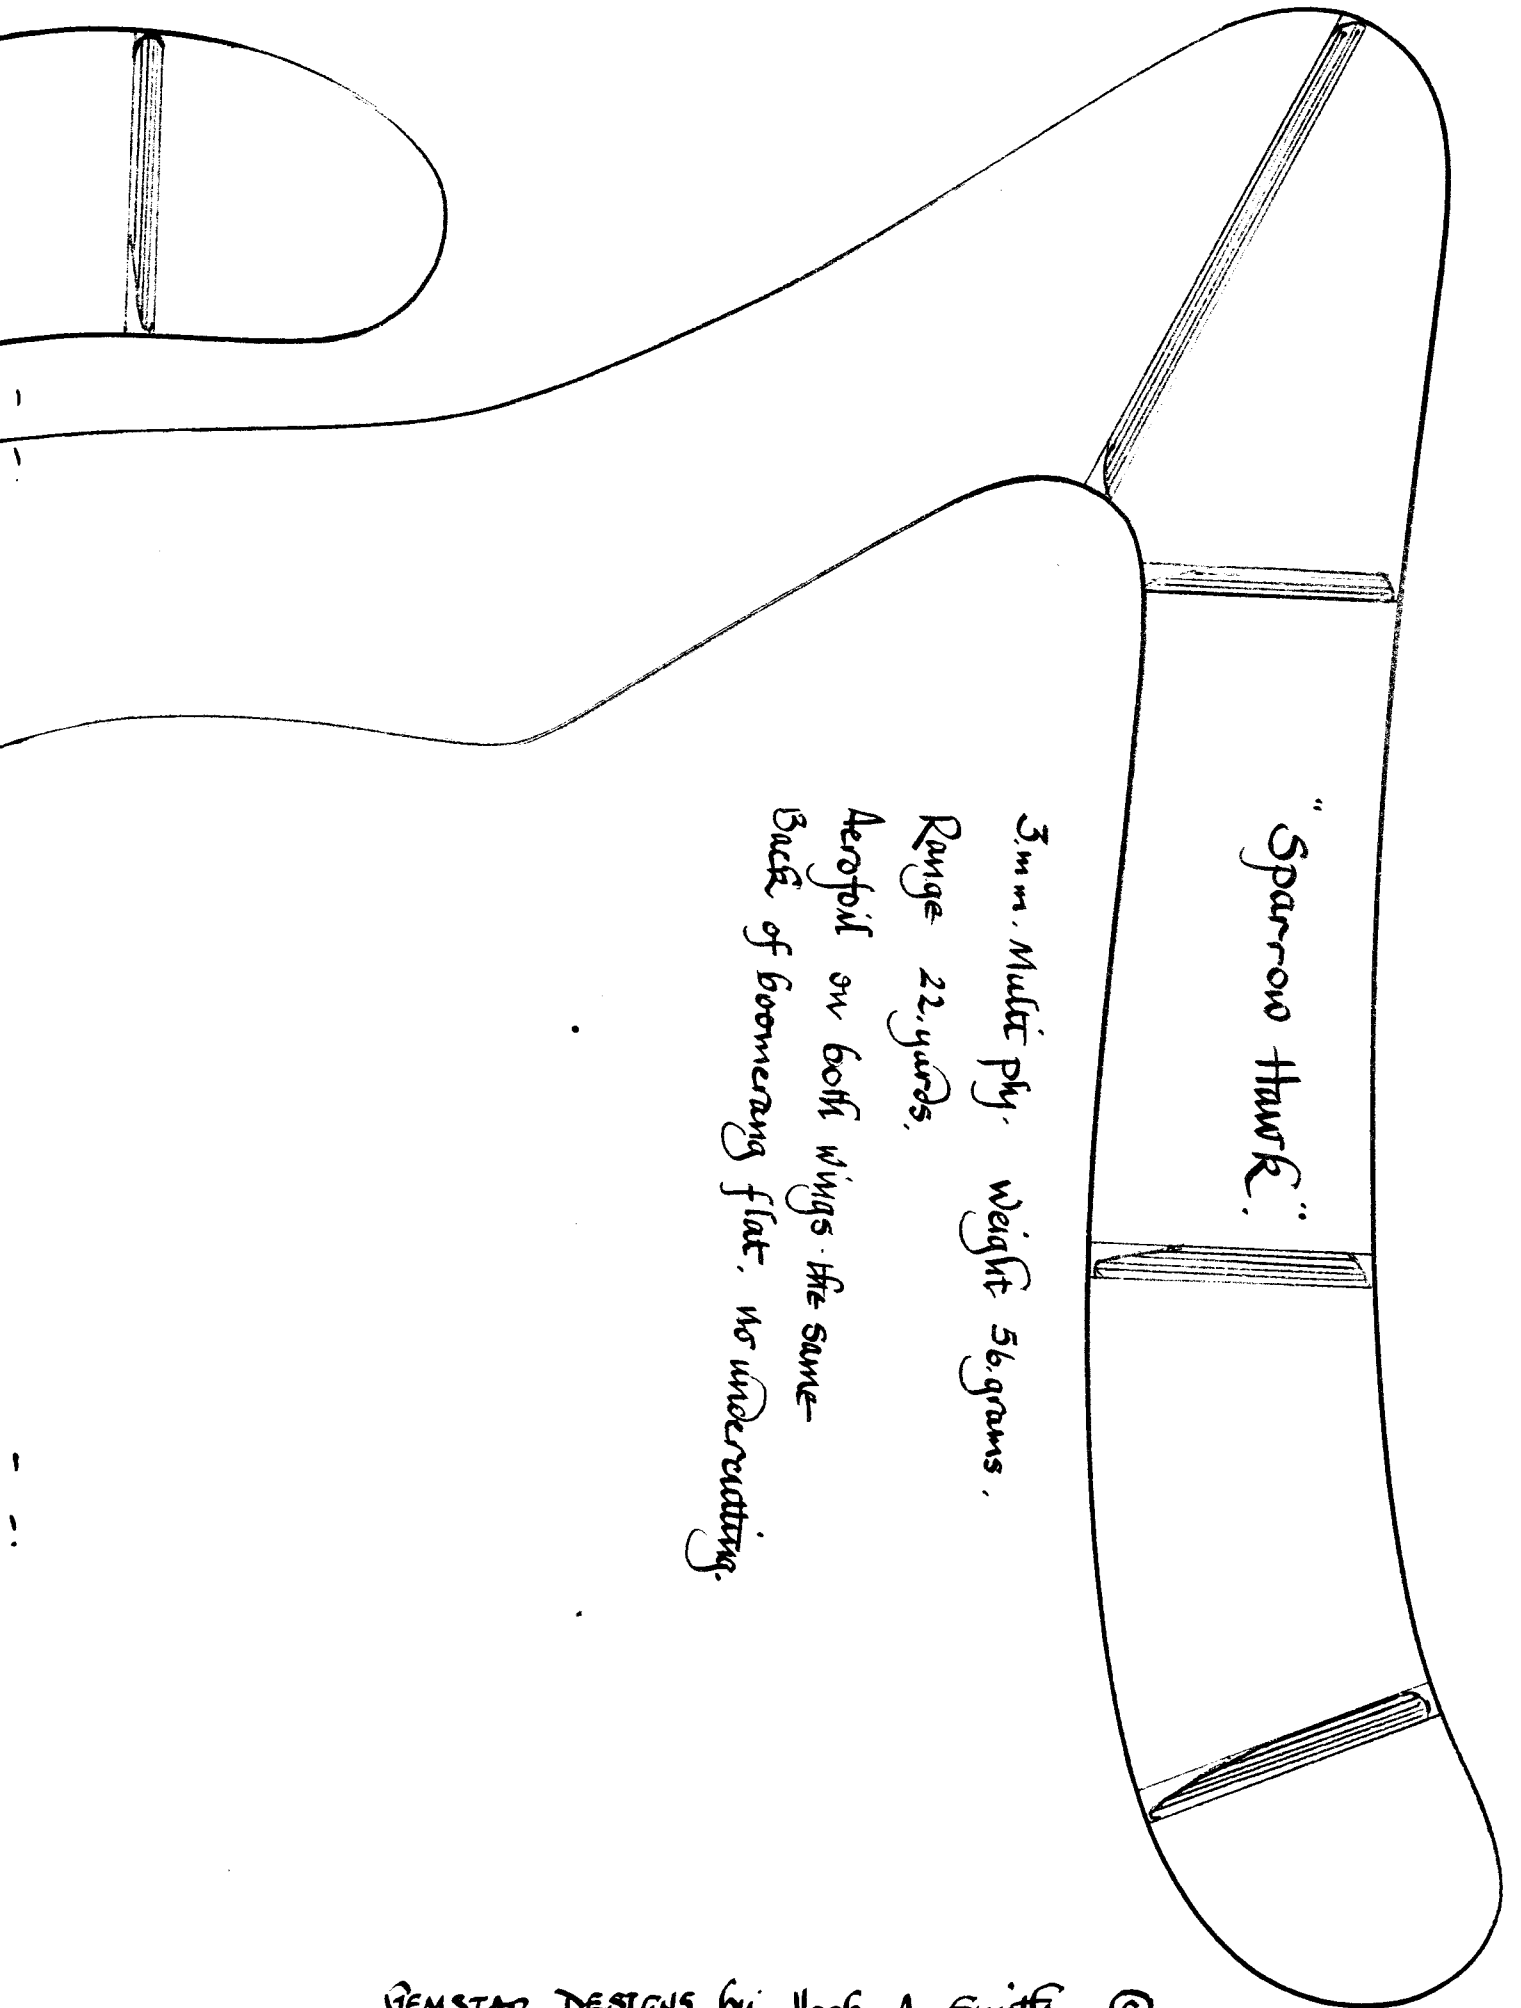 "Sparrow Hawk".
3.mm. Multi ply. Weight 56.grams.
Range 22.yards.
Aerofoil on both wings the same
Back of boomerang flat. no undercutting.
GEMSTAR DESIGNS by A. Smith ©